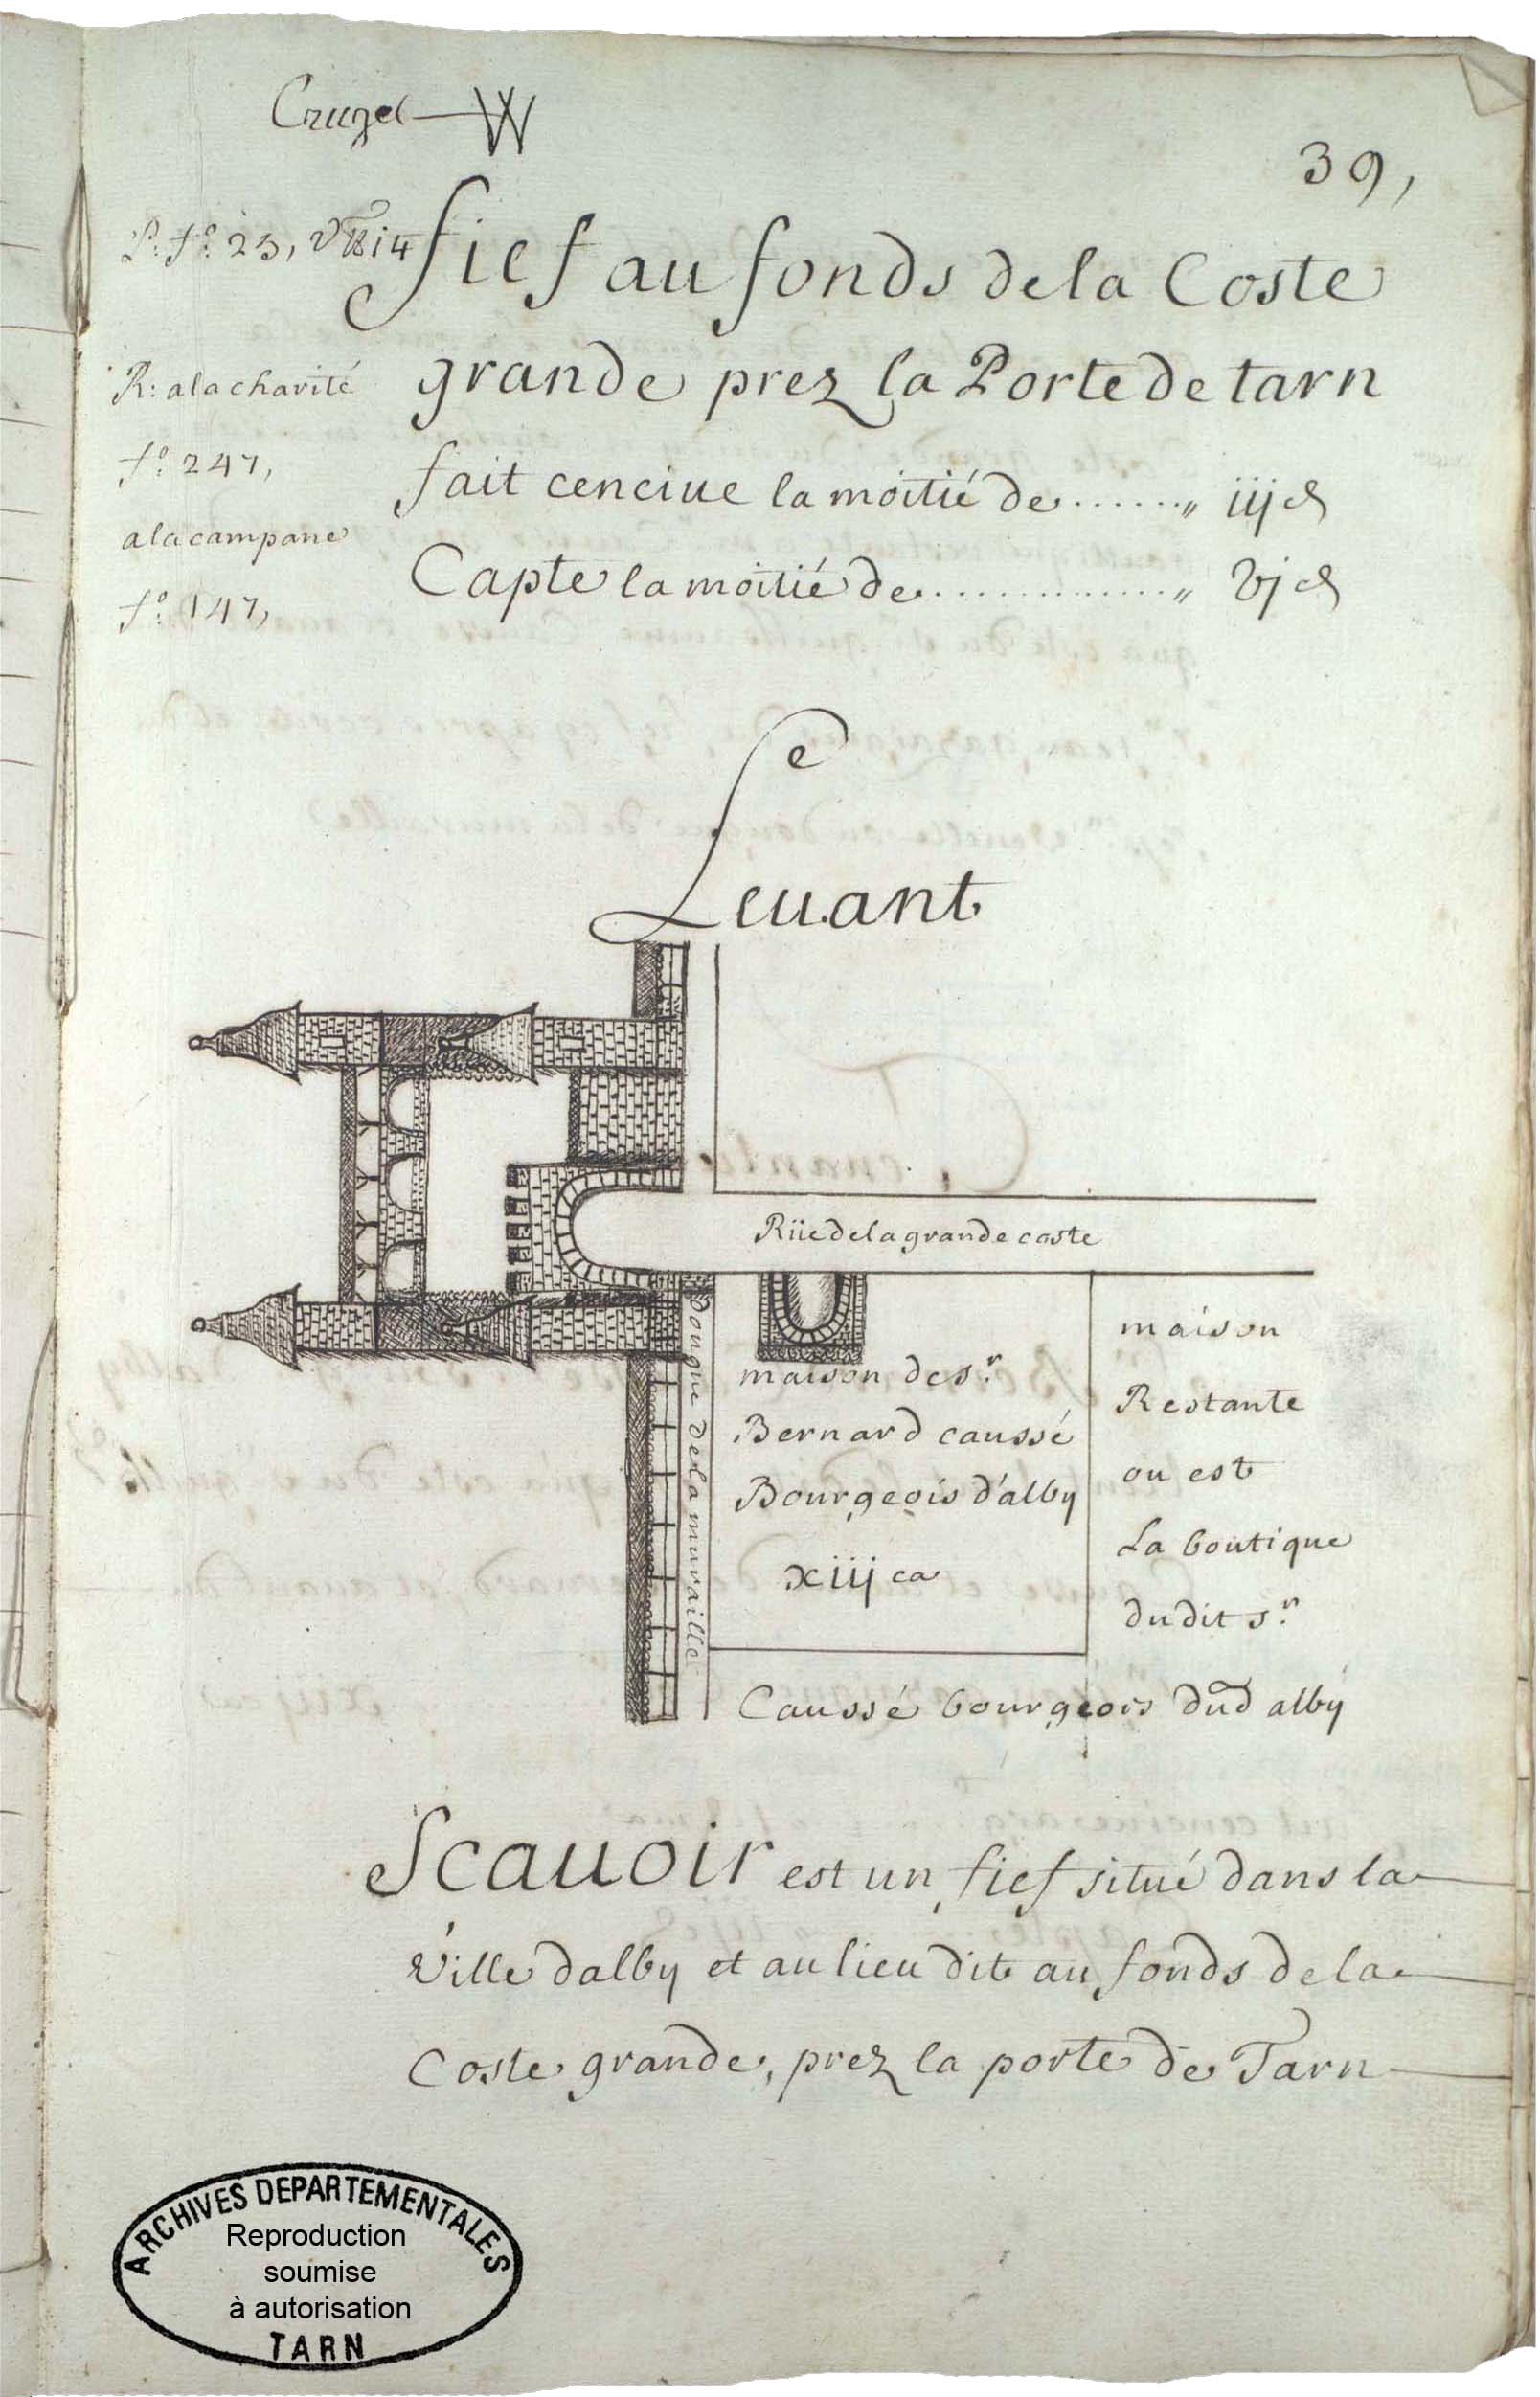 Cruzel
39,
P. fo. 23,
fief au fonds de la Coste
grande prez la Porte de tarn
R: a la charité
fo. 247,
fait cenciue la moitié de ....... " iij d
a la campane
Capte la moitié de ............. " vj d
fo. 147,
Leuant
Rüe de la grande coste
douque de la muraille
maison de sr.
Bernard caussé
Bourgeois d'alby
xiij ca
maison
Restante
ou est
La boutique
du dit sr.
Caussé bourgeois dud alby
Scauoir est un fief situé dans la
Ville dalby et au lieu dit au fonds de la
Coste grande, prez la porte de Tarn
ARCHIVES DEPARTEMENTALES
Reproduction
soumise
à autorisation
TARN